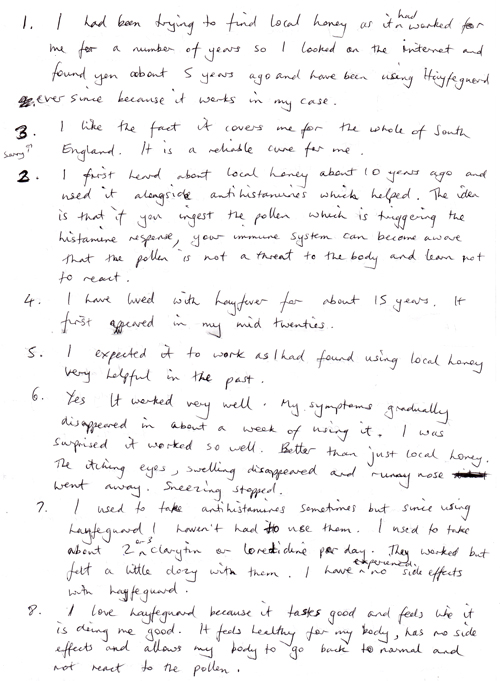 1. I had been trying to find local honey as it had worked for
me for a number of years so I looked on the internet and
found you about 5 years ago and have been using Hayfeguard
ever since because it works in my case.
3. I like the fact it covers me for the whole of South
England. It is a reliable cure for me.
Sorry
2. I first heard about local honey about 10 years ago and
used it alongside antihistamines which helped. The idea
is that if you ingest the pollen which is triggering the
histamine response, your immune system can become aware
that the pollen is not a threat to the body and learn not
to react.
4. I have lived with hayfever for about 15 years. It
first appeared in my mid twenties.
5. I expected it to work as I had found using local honey
very helpful in the past.
6. Yes It worked very well. My symptoms gradually
disappeared in about a week of using it. I was
surprised it worked so well. Better than just local honey.
The itching eyes, swelling disappeared and runny nose
went away. Sneezing stopped.
7. I used to take antihistamines sometimes but since using
hayfeguard I haven't had to use them. I used to take
about 2 or 3 clarytin or loretidine per day. They worked but
felt a little dozy with them. I have experienced no side effects
with hayfeguard.
8. I love hayfeguard because it tastes good and feels like it
is doing me good. It feels healthy for my body, has no side
effects and allows my body to go back to normal and
not react to the pollen.